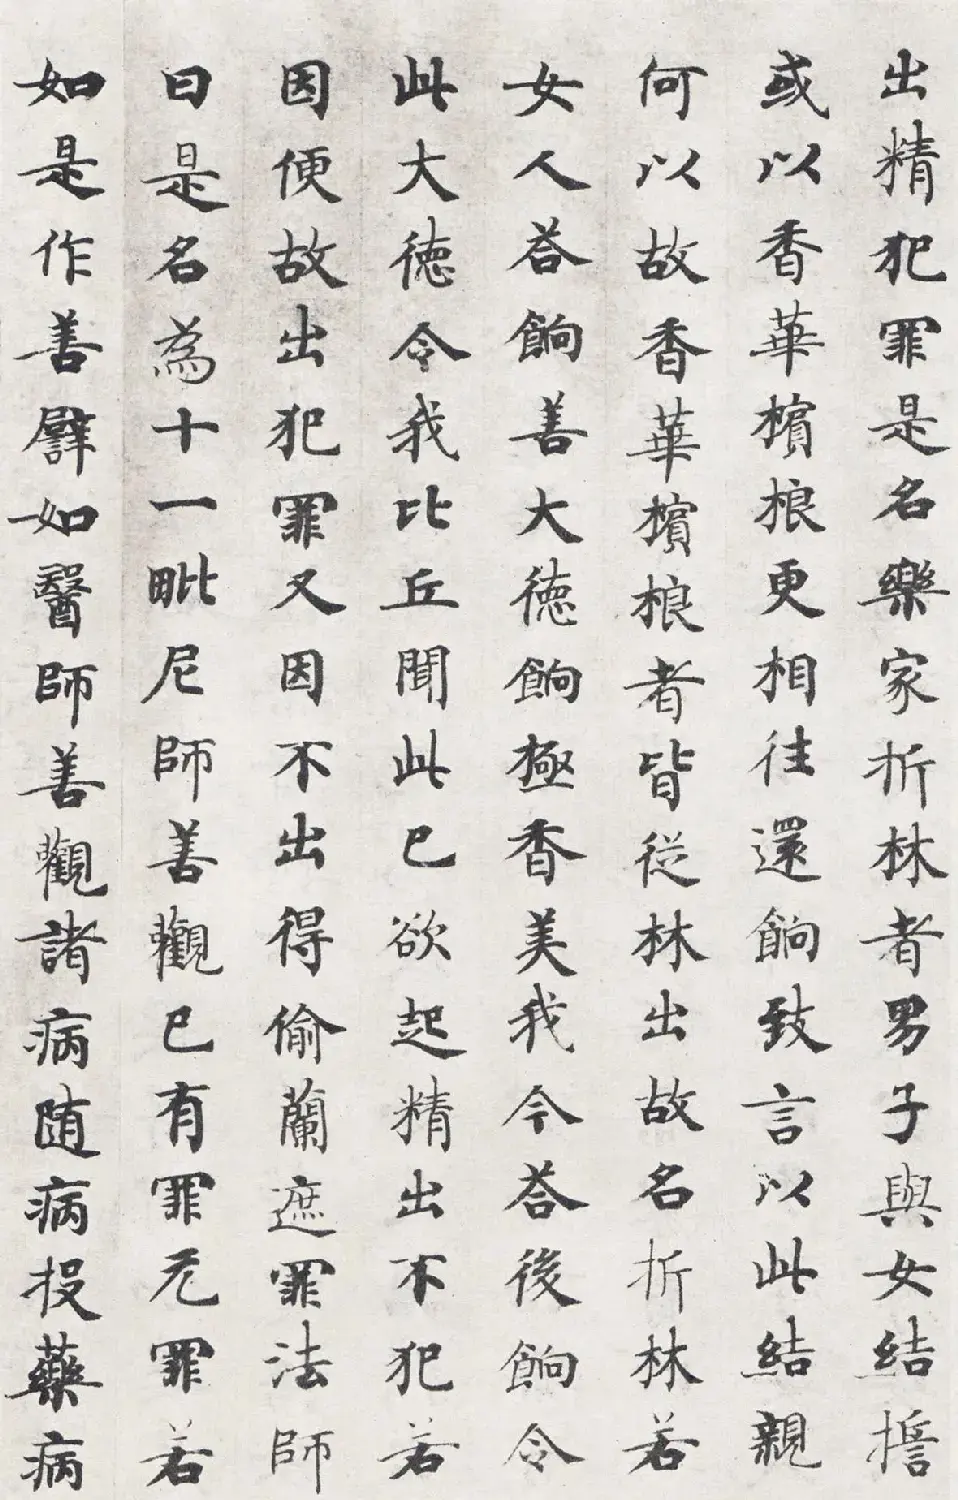 出精犯罪是名樂家折林者男子與女結擔
或以香華檳榔更相往還餉致言以此結親
何以故香華檳榔者皆從林出故名折林若
女人荅餉善大徳餉極香美我今荅後餉令
此大徳令我比丘聞此已欲起精出不犯若
因便故出犯罪又因不出得偷蘭遮罪法師
曰是名為十一毗尼師善觀已有罪无罪若
如是作善譬如醫師善觀諸病随病投藥病